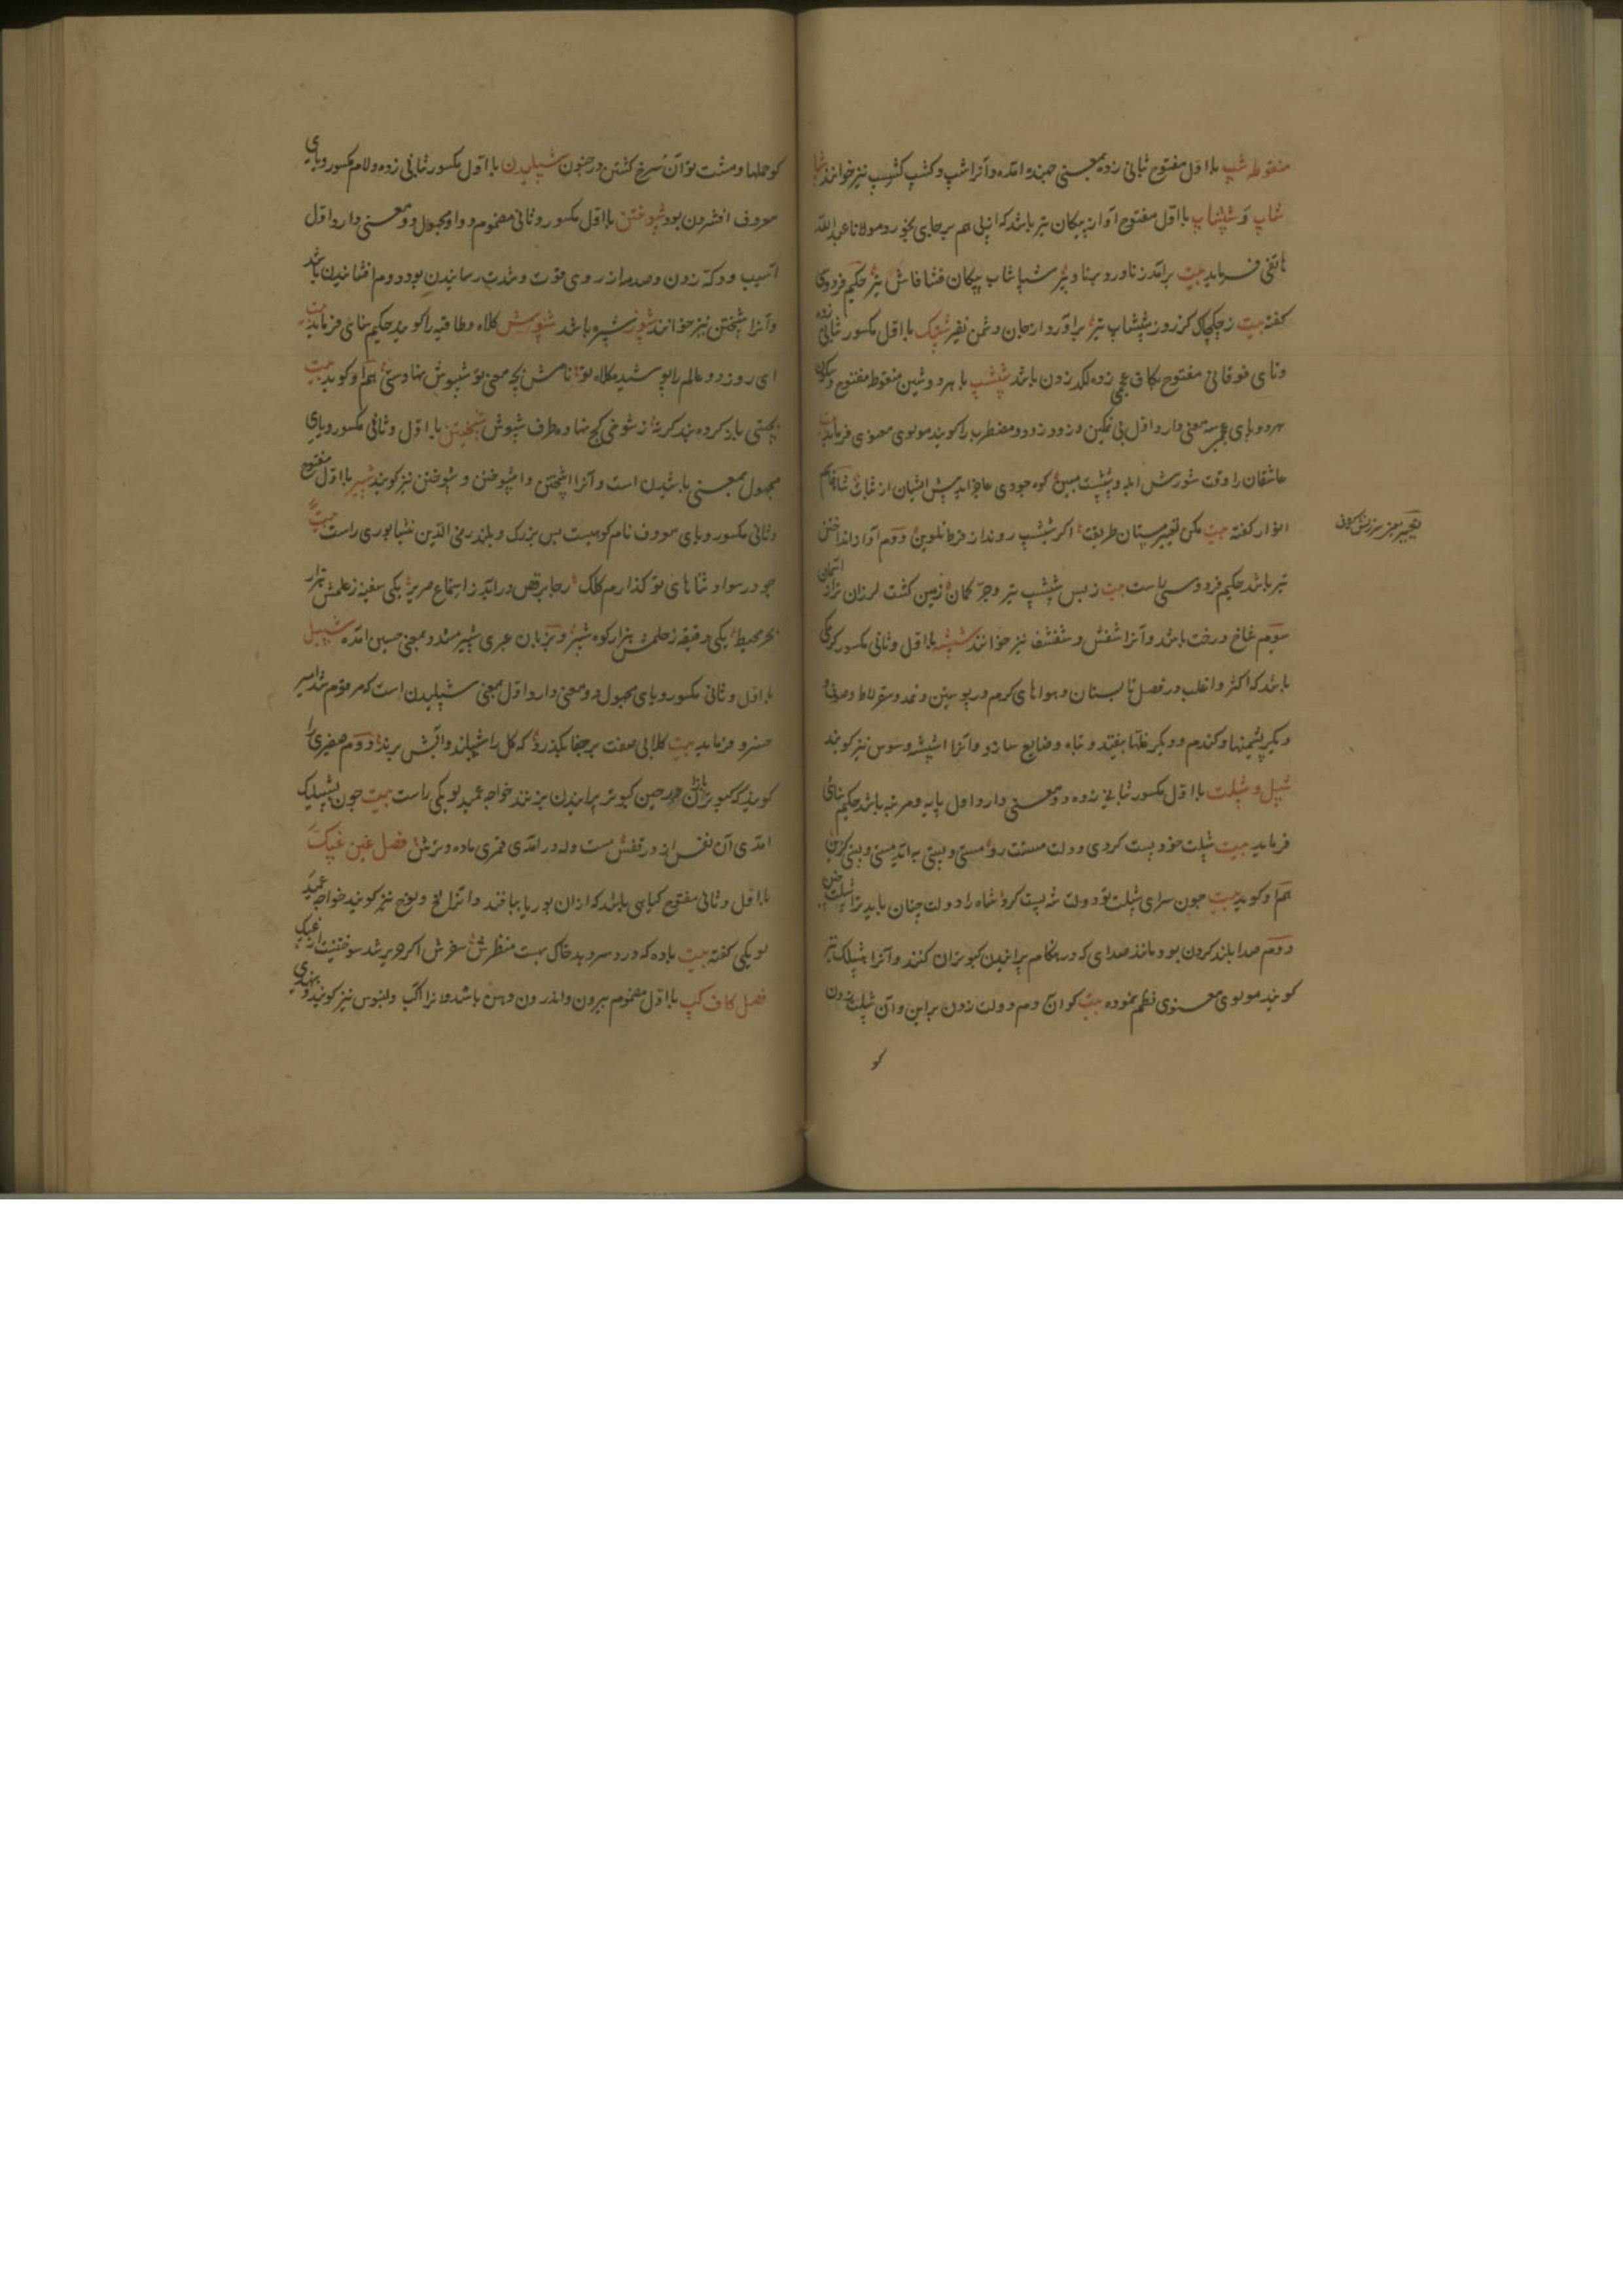 منقوطه شپ بااول مفتوح بثانی زده بمعنی جهنده آمده و آنرا شپ و کشپ کشسب نیز خوانند
شاپ و شپاشاپ بااول مفتوح آواز پیکان تیر باشد که از پی هم بر جای بخورد مولانا عبدالله
هاتفی فرماید بیت برآمد ز ناورد برنا و پیر شپاشاپ پیکان فشافاش تیر حکیم فردوسی
گفته بیت ز چکچاک گرز و ز شپشاپ تیر برآورد از جان دشمن نفیر شپک بااول مکسور بثانی زده
و تای فوقانی مفتوح بکاف عجمی زده لکد زدن باشد شپشپ با هر دو شین منقوطه مفتوح و سکون
هر دو بای عجمی سه معنی دارد اول بی تمکین و زود زود و مضطرب را گویند مولوی معنوی فرماید
عاشقان را وقت شورش
انوار گفته بیت مکن تعییر مستان طریقت اگر شپشپ روند از فرط تلوین دوم آواز انداختن
تیر باشد حکیم فردوسی راست بیت ز بس شپشپ تیر و جر کمان زمین گشت لرزان تر از آسمان
سوم شاخ درخت باشد و آنرا شفش و شفشف نیز خوانند شپشه بااول و ثانی مکسور کرمی
باشد که اکثر و اغلب در فصل تابستان و هواهای گرم در پوستین و نمد و سقرلاط و صوف و
دیگر پشمینها و گندم و دیگر غلها بیفتد و تباه و ضایع سازد و آنرا اشپشه و سوس نیز گویند
شپل و شپلت بااول مکسور بثانی زده دو معنی دارد اول پایه و مرتبه باشد حکیم سنائی
فرماید بیت شپلت خود پست کردی دولت مستت
هم او گوید بیت چون سرای شپلت تو دولت شه پست کرد شاه را دولت چنان باید ترا شپلت چنین
دوم صدا بلند کردن بود مانند صدای که در هنگام پرانیدن کبوتران کنند و آنرا شپلک نیز
گویند مولوی معنوی نظم نموده بیت کو آن دم دولت زدن بر این و آن شپلت زدن
کو
تعییر بمعنی سرزنش کردن
کو حملها و مشت تو آن سرخ گشتن در جنون شپلیدن بااول مکسور بثانی زده و لام مکسور و یای
معروف افشردن بود شپوختن بااول مکسور و ثانی مضموم و واو مجهول دو معنی دارد اول
آسیب و دکه زدن و صدمه از روی قوت و شدت رسانیدن بود دوم افشانیدن باشد
و آنرا شپختن نیز خوانند شپوز شپره باشد شپوش کلاه و طاقیه را گویند حکیم سنای فرماید بیت
ای روز دو عالم را پوشیده کلاه تو نامش بچه معنی تو شپوش نهادستی هم او گوید بیت
بچستی باز کرده بند کرته ز شوخی کج نهاده طرف شپوش شپیختن بااول و ثانی مکسور و یای
مجهول بمعنی پاشیدن است و آنرا اشپختن و اشپوختن و شپوختن نیز گویند شپیر بااول مفتوح
و ثانی مکسور و یای معروف نام کوهیست بس بزرگ و بلند رضی الدین نیشابوری راست بیت
چو در سواد ثناهای تو گذارم کلک ز جا برقص درآید ز استماع صریر یکی سفینه ز علمش هزار
بحر محیط یکی دقیقه ز حلمش هزار کوه شپیر و بزبان عبری شپیر مشدد بمعنی حسین آمده شپیل
بااول و ثانی مکسور و یای مجهول دو معنی دارد اول بمعنی شپلیدن است که مرقوم شد امیر
خسرو فرماید بیت گلابی صفت بر جفا بگذرد که گل را شپلند و آبش برند دوم صفیری را
گویند که کبوتربازان در حین کبوتر پرانیدن بزنند خواجه عمید لوبکی راست بیت چون بشپیلیک
آمدی آن نفس از در قفس مست وله درآمدی قمری ماده و نرش فصل غین غپک
بااول و ثانی مفتوح گیاهی باشد که از آن بوریا ببافند و آنرا لخ و لوخ نیز گویند خواجه عمید
لوبکی گفته بیت باده که درد سر دهد خاک بهست منظرش
فصل کاف کپ بااول مضموم بیرون و اندرون دهن باشد و آنرا آکپ و لنبوس نیز گویند و بهندی